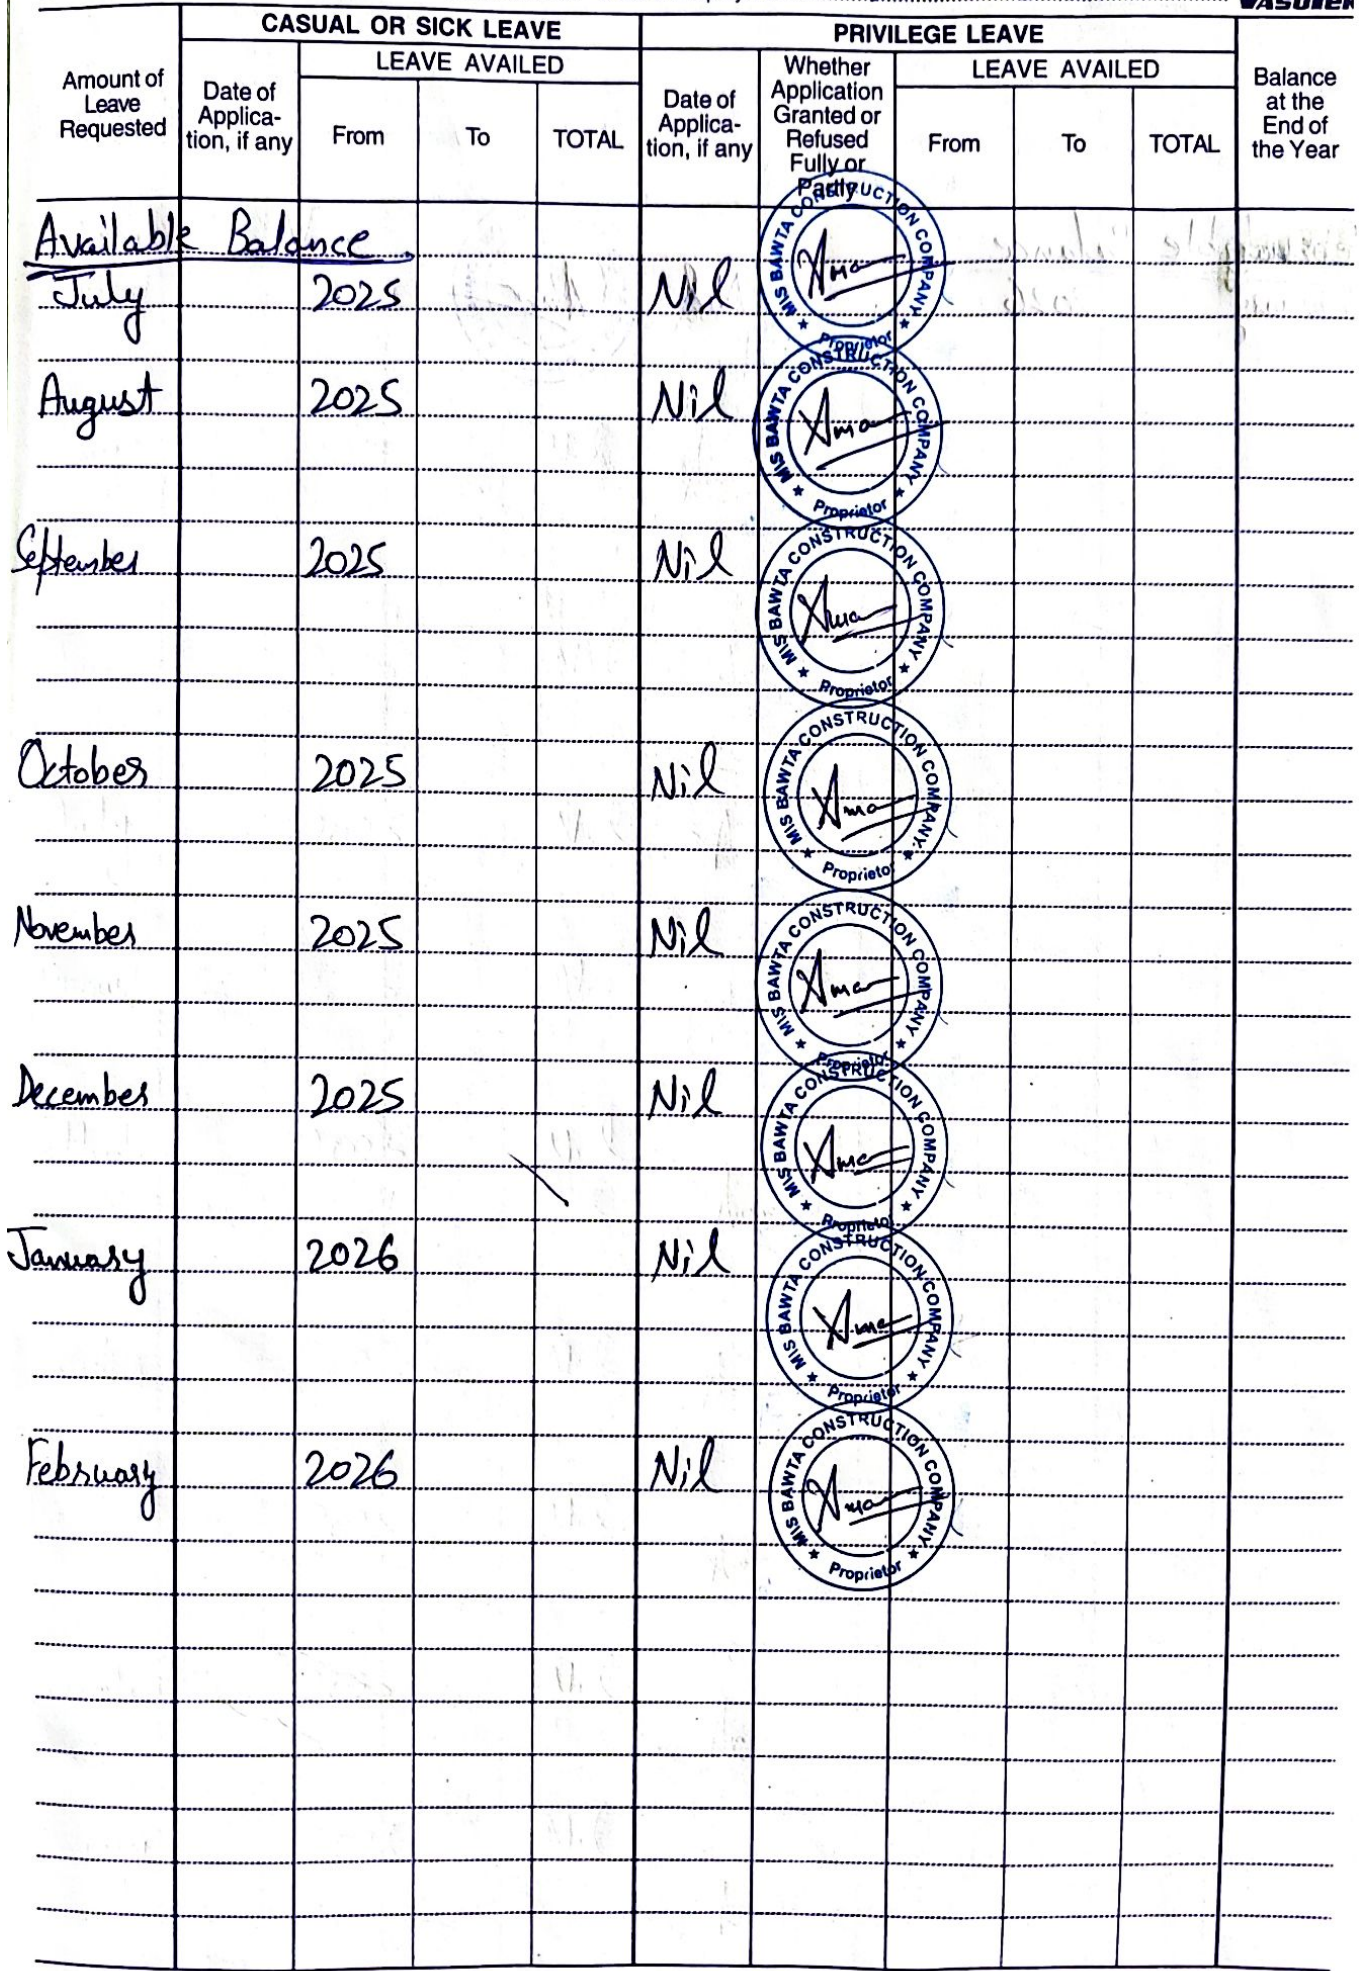 VASUDEV
CASUAL OR SICK LEAVE PRIVILEGE LEAVE
Amount of Leave Requested
Date of Applica- tion, if any
LEAVE AVAILED
From To TOTAL
Date of Applica- tion, if any
Whether Application Granted or Refused Fully or Partly
LEAVE AVAILED
From To TOTAL
Balance at the End of the Year
Available Balance
July 2025 Nil
M/S BAWTA CONSTRUCTION COMPANY
Proprietor
August 2025 Nil
M/S BAWTA CONSTRUCTION COMPANY
Proprietor
September 2025 Nil
M/S BAWTA CONSTRUCTION COMPANY
Proprietor
October 2025 Nil
M/S BAWTA CONSTRUCTION COMPANY
Proprietor
November 2025 Nil
M/S BAWTA CONSTRUCTION COMPANY
Proprietor
December 2025 Nil
M/S BAWTA CONSTRUCTION COMPANY
Proprietor
January 2026 Nil
M/S BAWTA CONSTRUCTION COMPANY
Proprietor
February 2026 Nil
M/S BAWTA CONSTRUCTION COMPANY
Proprietor